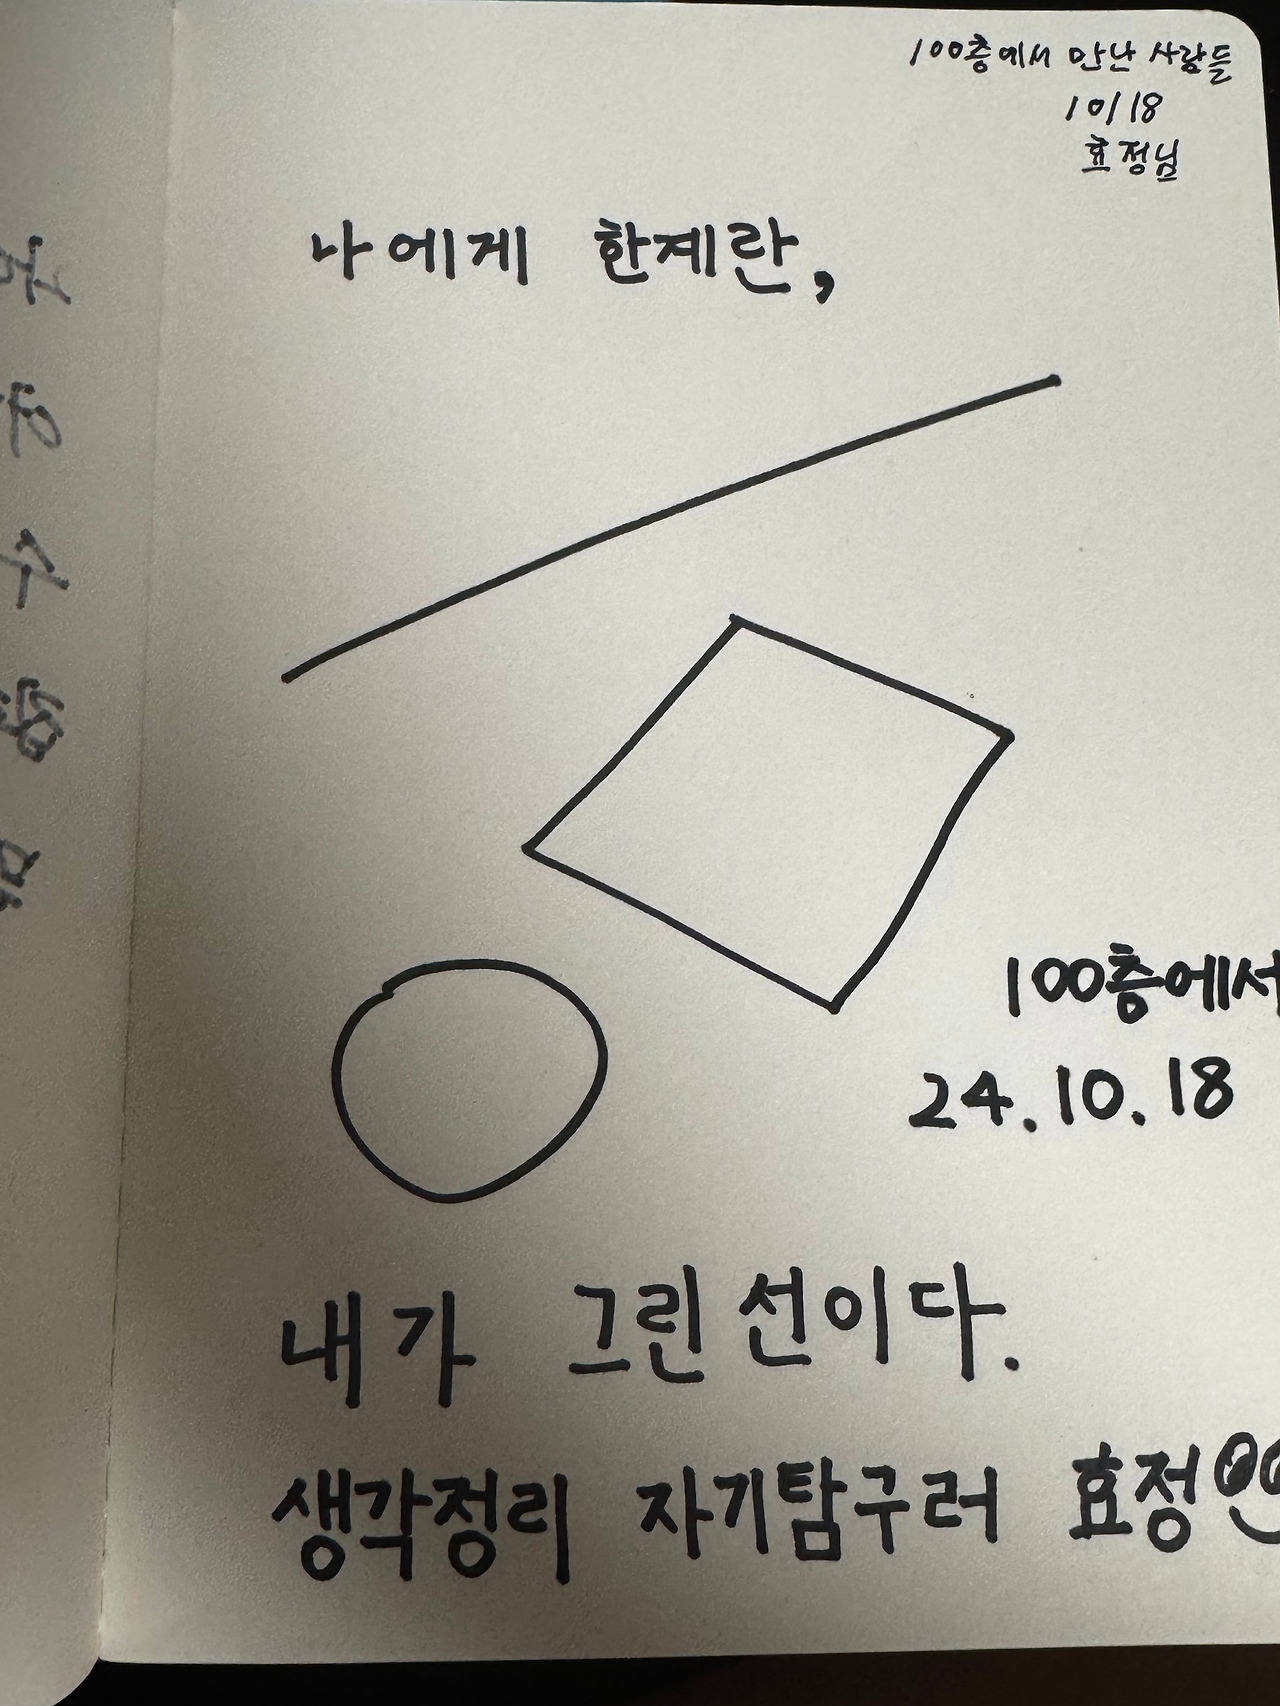 100층에서 만난 사람들
10/18
효정님
나에게 한계란,
100층에서
24.10.18
내가 그린 선이다.
생각정리 자기탐구러 효정